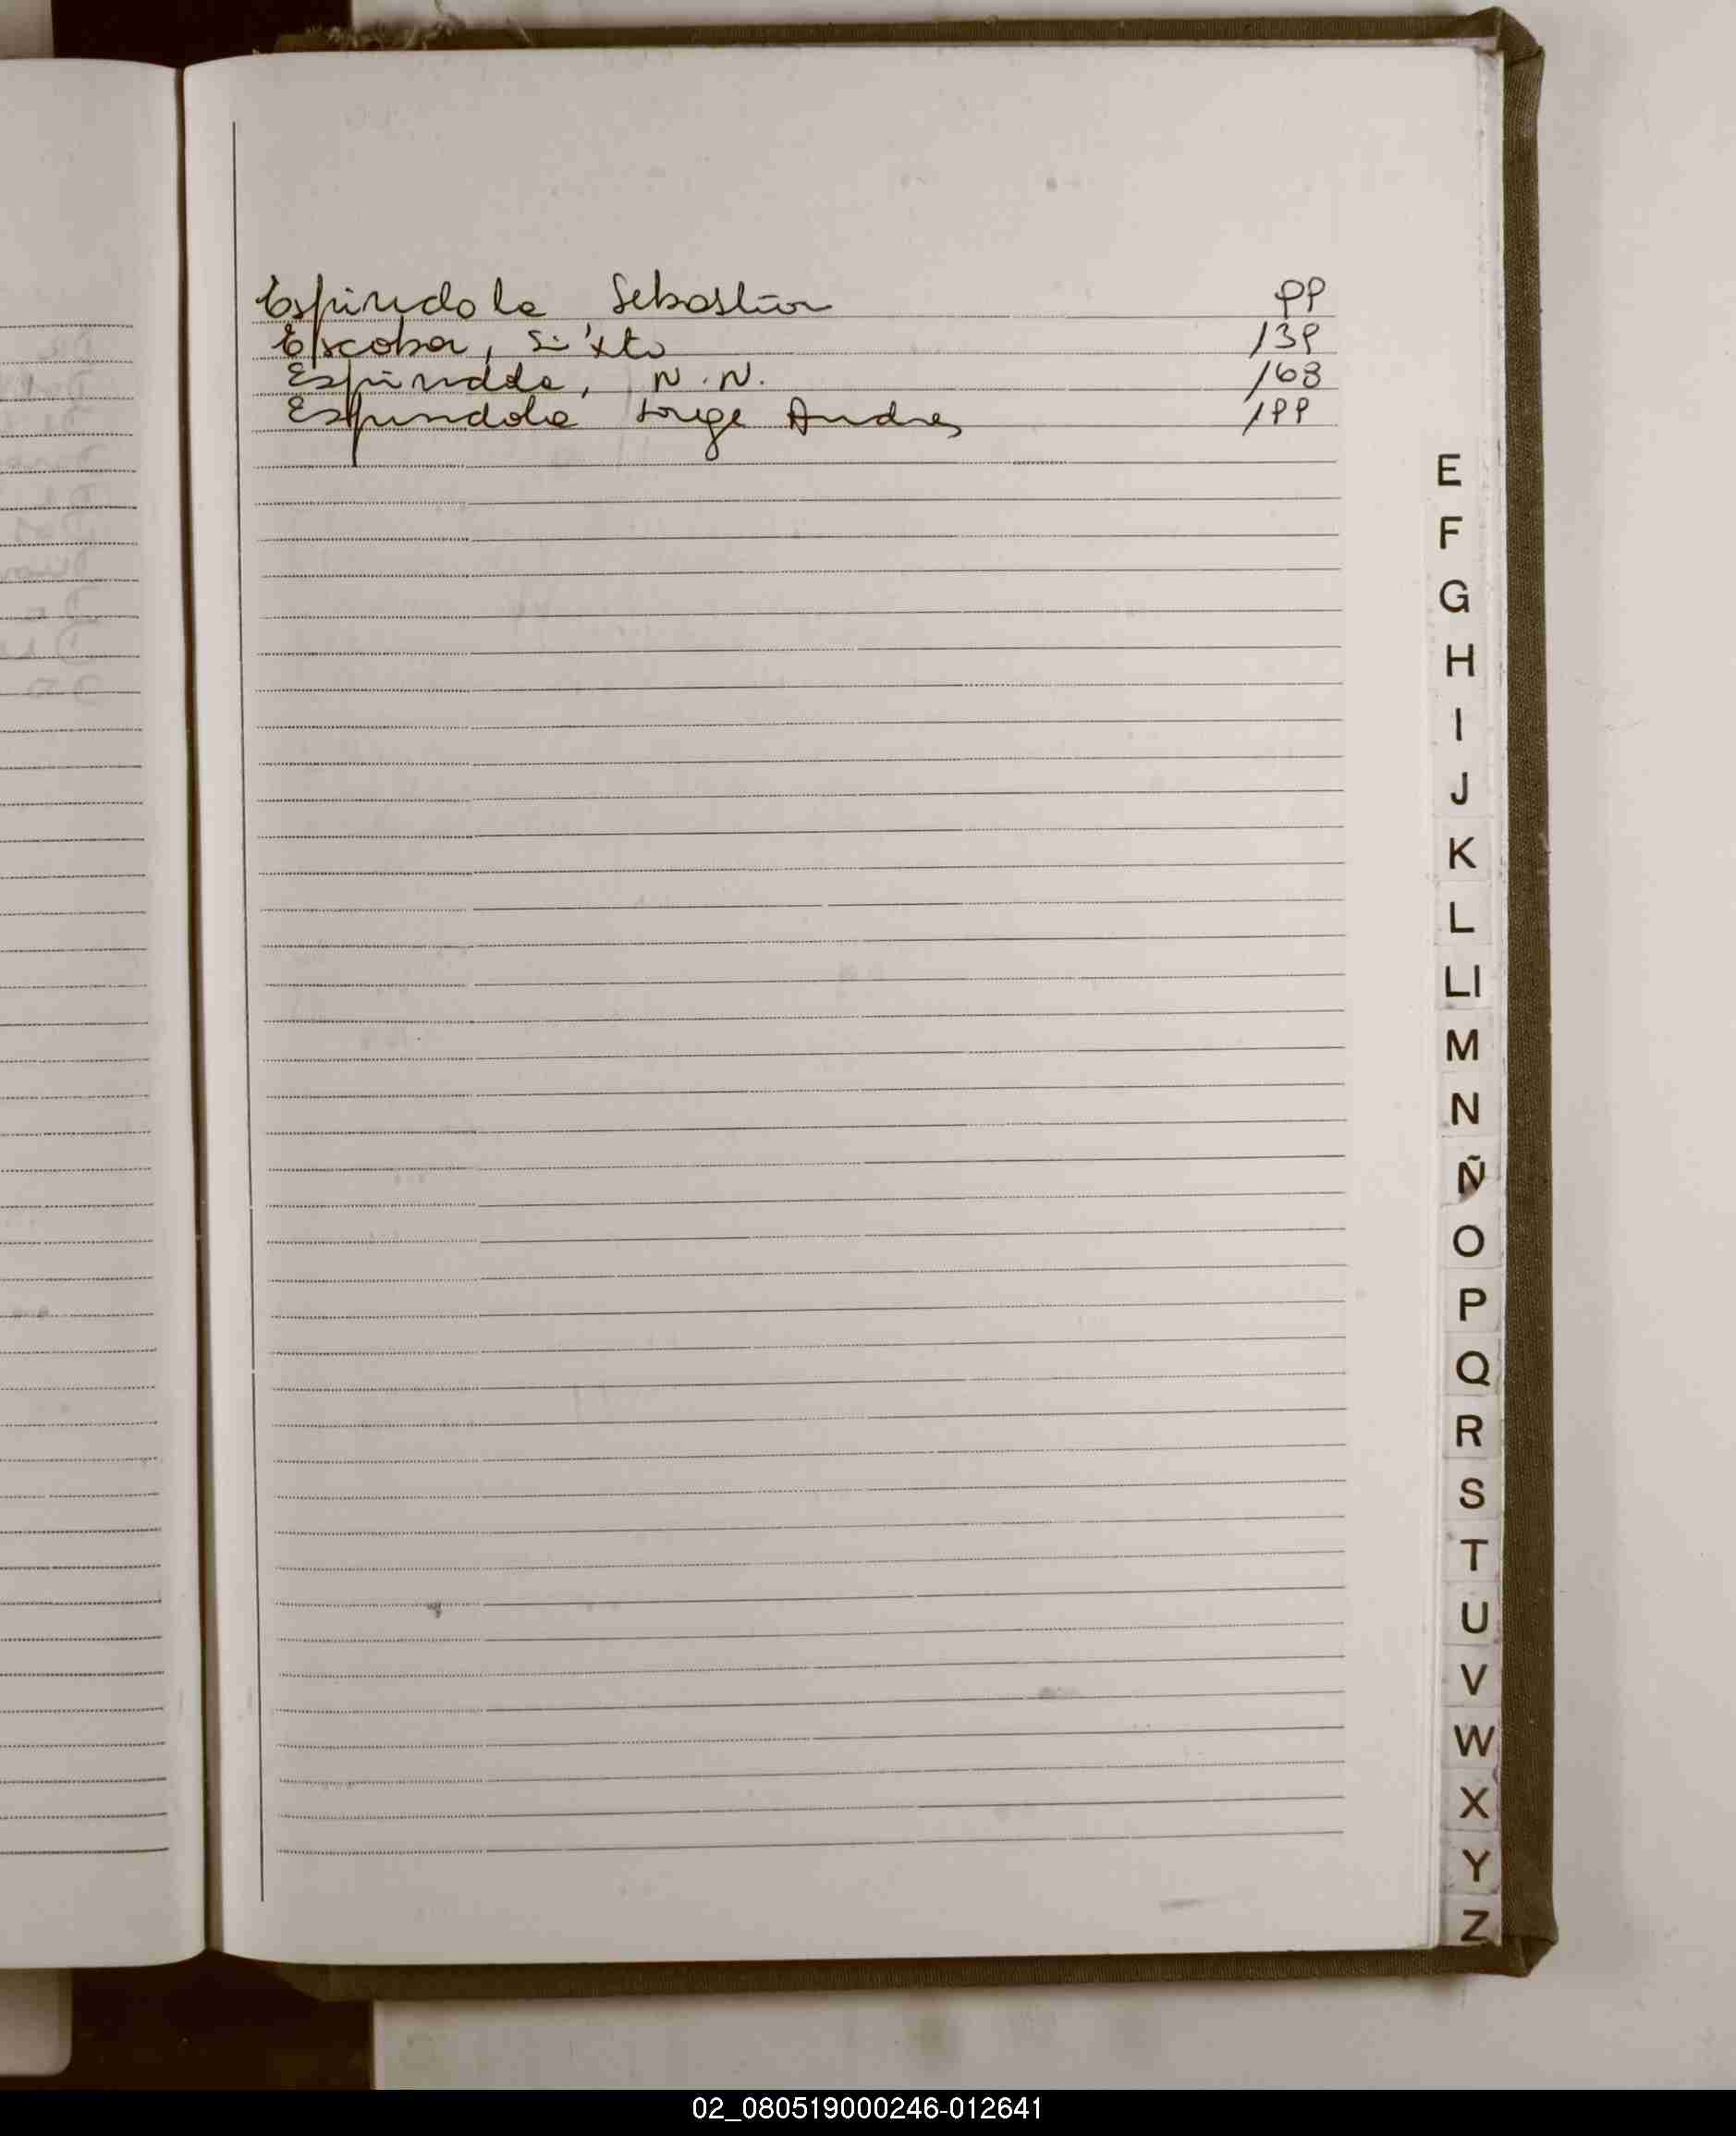 Espindola Sebastian 99
Escobar, Sixto 139
Espindola, N.N. 168
Espindola Jorge Andres 199
E
F
G
H
I
J
K
L
Ll
M
N
Ñ
O
P
Q
R
S
T
U
V
W
X
Y
Z
02_080519000246-012641